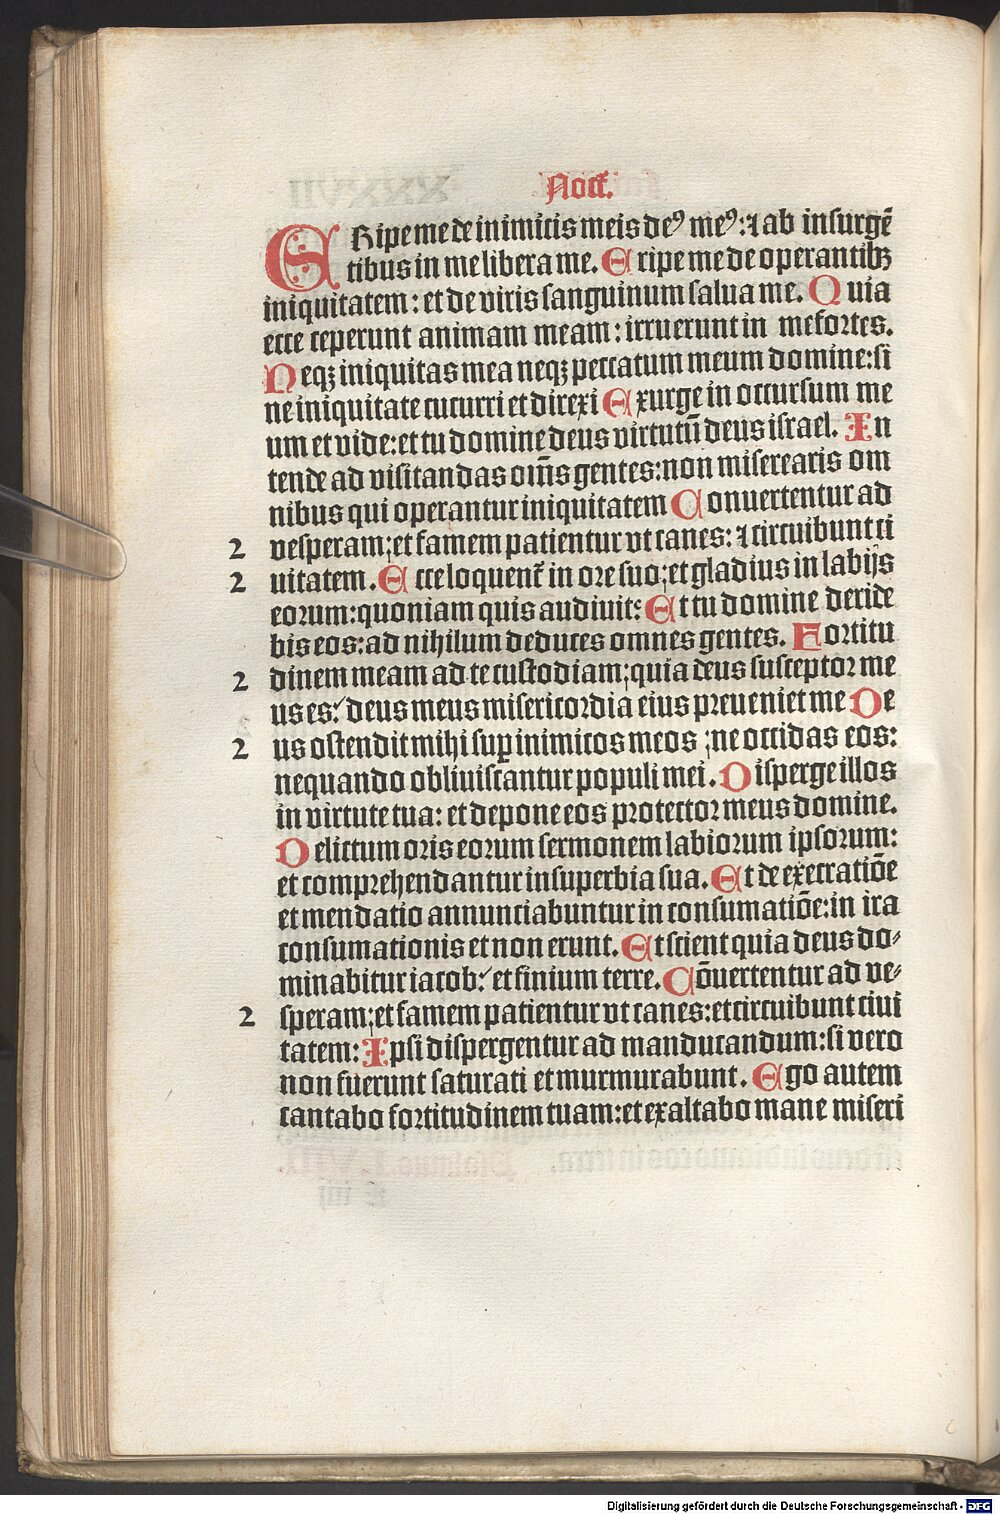 Noct̄.
ERipe me de inimicis meis deꝰ meꝰ: ⁊ ab insurgē
tibus in me libera me. Eripe me de operantibꝫ
iniquitatem: et de viris sanguinum salua me. Quia
ecce ceperunt animam meam: irruerunt in me fortes.
Neqꝫ iniquitas mea neqꝫ peccatum meum domine: si
ne iniquitate cucurri et direxi Exurge in occursum me
um et vide: et tu domine deus virtutū deus israel. In
tende ad visitandas om̄s gentes: non miserearis om
nibus qui operantur iniquitatem Conuertentur ad
2 vesperam; et famem patientur vt canes: ⁊ circuibunt ci
2 uitatem. Ecce loquent᷑ in ore suo; et gladius in labijs
eorum: quoniam quis audiuit: Et tu domine deride
bis eos: ad nihilum deduces omnes gentes. Fortitu
2 dinem meam ad te custodiam; quia deus susceptor me
us es: deus meus misericordia eius preueniet me De
2 us ostendit mihi suꝑ inimicos meos; ne occidas eos:
nequando obliuiscantur populi mei. Disperge illos
in virtute tua: et depone eos protector meus domine.
Delictum oris eorum sermonem labiorum ipsorum:
et comprehendantur in superbia sua. Et de execratiōe
et mendatio annunciabuntur in consumatiōe: in ira
consumationis et non erunt. Et scient quia deus do⸗
minabitur iacob: et finium terre. Cōuertentur ad ve⸗
2 speram; et famem patientur vt canes: et circuibunt ciui
tatem: Ipsi dispergentur ad manducandum: si vero
non fuerunt saturati et murmurabunt. Ego autem
cantabo fortitudinem tuam: et exaltabo mane miseri
Digitalisierung gefördert durch die Deutsche Forschungsgemeinschaft - DFG